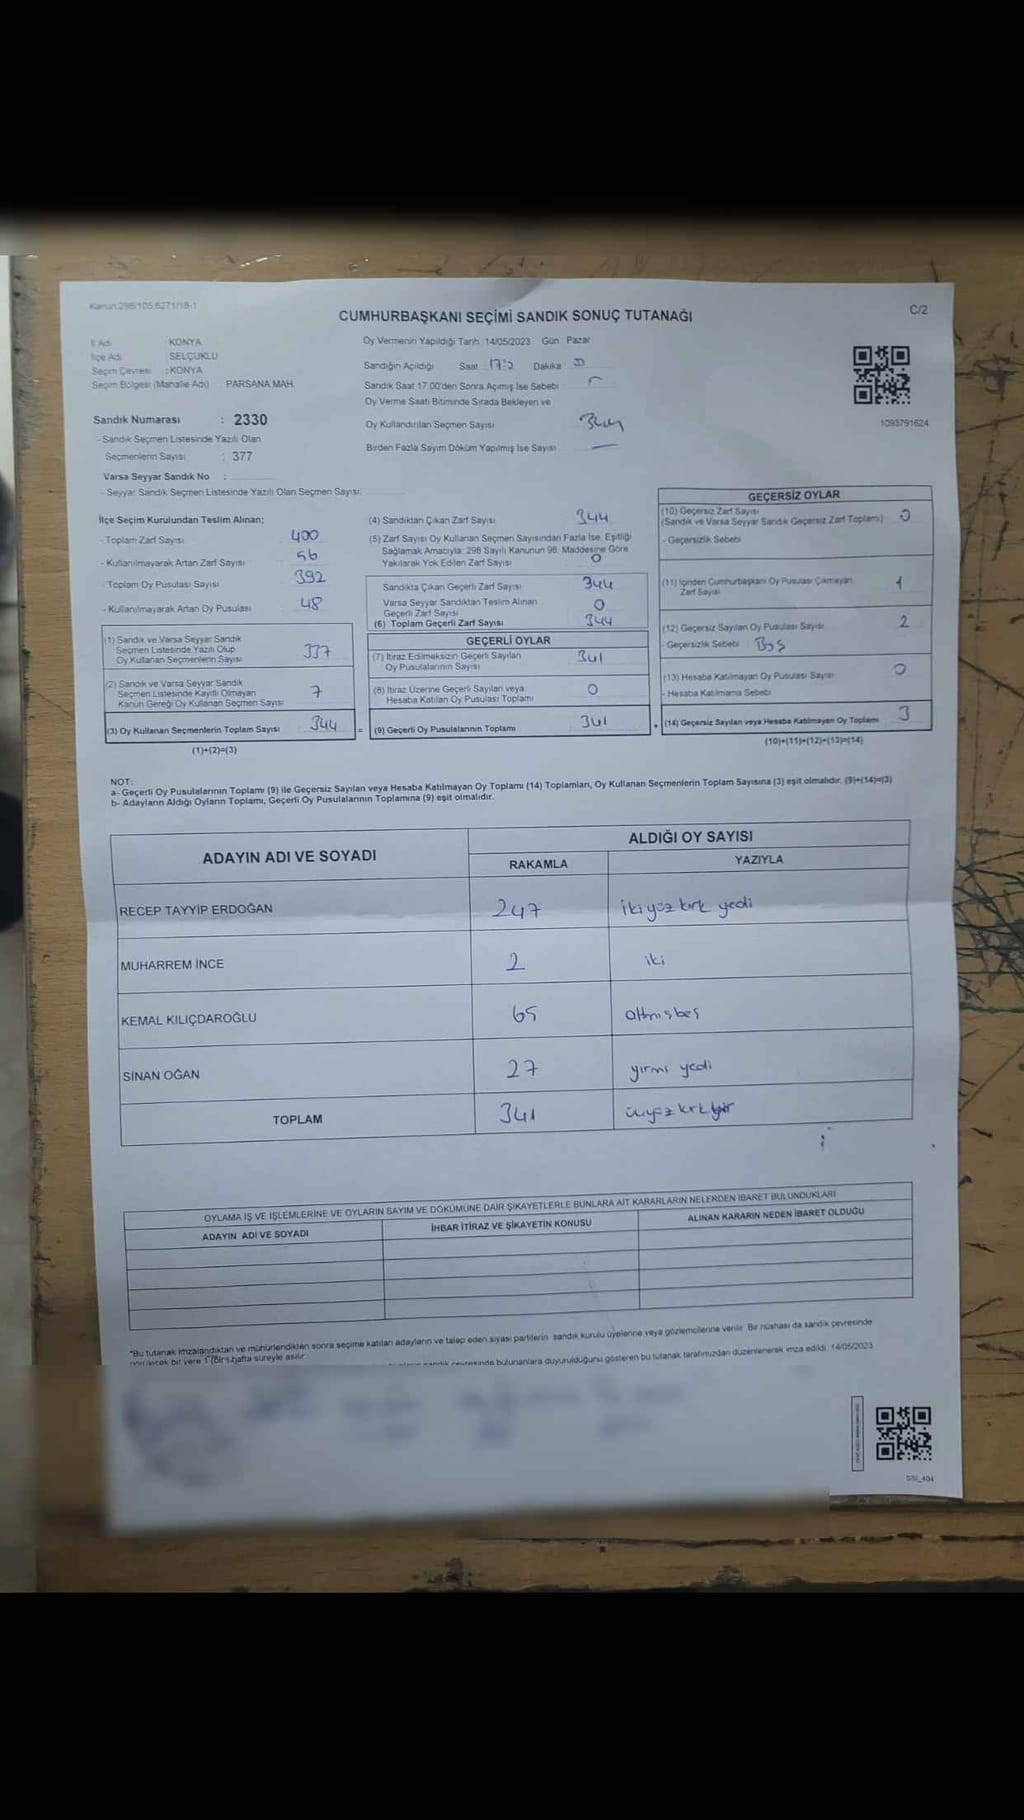 Kanun:298/105;6271/18-1
CUMHURBAŞKANI SEÇİMİ SANDIK SONUÇ TUTANAĞI
C/2
İl Adı KONYA
İlçe Adı SELÇUKLU
Seçim Çevresi : KONYA
Seçim Bölgesi (Mahalle Adı) : PARSANA MAH.
Oy Vermenin Yapıldığı Tarih 14/05/2023 Gün : Pazar
Sandığın Açıldığı Saat Dakika :
Sandık Saat 17:00'den Sonra Açımış İse Sebebi
Oy Verme Saati Bitiminde Sırada Bekleyen ve
Oy Kullandırılan Seçmen Sayısı 344
Birden Fazla Sayım Döküm Yapılmış İse Sayısı —
1093791624
Sandık Numarası : 2330
- Sandık Seçmen Listesinde Yazılı Olan
Seçmenlerin Sayısı : 377
Varsa Seyyar Sandık No :
- Seyyar Sandık Seçmen Listesinde Yazılı Olan Seçmen Sayısı:
İlçe Seçim Kurulundan Teslim Alınan;
- Toplam Zarf Sayısı 400
- Kullanılmayarak Artan Zarf Sayısı 56
- Toplam Oy Pusulası Sayısı 392
- Kullanılmayarak Artan Oy Pusulası 48
(1) Sandık ve Varsa Seyyar Sandık
Seçmen Listesinde Yazılı Olup
Oy Kullanan Seçmenlerin Sayısı 337
(2) Sandık ve Varsa Seyyar Sandık
Seçmen Listesinde Kayıtlı Olmayan
Kanun Gereği Oy Kullanan Seçmen Sayısı 7
(3) Oy Kullanan Seçmenlerin Toplam Sayısı 344
(1)+(2)=(3)
(4) Sandıktan Çıkan Zarf Sayısı 344
(5) Zarf Sayısı Oy Kullanan Seçmen Sayısından Fazla İse, Eşitliği
Sağlamak Amacıyla; 298 Sayılı Kanunun 98. Maddesine Göre
Yakılarak Yok Edilen Zarf Sayısı 0
Sandıkta Çıkan Geçerli Zarf Sayısı 344
Varsa Seyyar Sandıktan Teslim Alınan
Geçerli Zarf Sayısı 0
(6) Toplam Geçerli Zarf Sayısı 344
GEÇERLİ OYLAR
(7) İtiraz Edilmeksizin Geçerli Sayılan
Oy Pusulalarının Sayısı 341
(8) İtiraz Üzerine Geçerli Sayılan veya
Hesaba Katılan Oy Pusulası Toplamı 0
= (9) Geçerli Oy Pusulalarının Toplamı 341
GEÇERSİZ OYLAR
(10) Geçersiz Zarf Sayısı
(Sandık ve Varsa Seyyar Sandık Geçersiz Zarf Toplamı) 0
- Geçersizlik Sebebi
(11) İçinden Cumhurbaşkanı Oy Pusulası Çıkmayan
Zarf Sayısı 1
(12) Geçersiz Sayılan Oy Pusulası Sayısı 2
- Geçersizlik Sebebi Boş
(13) Hesaba Katılmayan Oy Pusulası Sayısı 0
- Hesaba Katılmama Sebebi
+ (14) Geçersiz Sayılan veya Hesaba Katılmayan Oy Toplamı 3
(10)+(11)+(12)+(13)=(14)
NOT:
a- Geçerli Oy Pusulalarının Toplamı (9) ile Geçersiz Sayılan veya Hesaba Katılmayan Oy Toplamı (14) Toplamları, Oy Kullanan Seçmenlerin Toplam Sayısına (3) eşit olmalıdır. (9)+(14)=(3)
b- Adayların Aldığı Oyların Toplamı, Geçerli Oy Pusulalarının Toplamına (9) eşit olmalıdır.
ADAYIN ADI VE SOYADI
ALDIĞI OY SAYISI
RAKAMLA YAZIYLA
RECEP TAYYİP ERDOĞAN 247 ikiyüz kırk yedi
MUHARREM İNCE 2 iki
KEMAL KILIÇDAROĞLU 65 altmışbeş
SİNAN OĞAN 27 yirmi yedi
TOPLAM 341 üçyüz kırk bir
OYLAMA İŞ VE İŞLEMLERİNE VE OYLARIN SAYIM VE DÖKÜMÜNE DAİR ŞİKAYETLERLE BUNLARA AİT KARARLARIN NELERDEN İBARET BULUNDUKLARI
ADAYIN ADI VE SOYADI İHBAR İTİRAZ VE ŞİKAYETİN KONUSU ALINAN KARARIN NEDEN İBARET OLDUĞU
"Bu tutanak imzalandıktan ve mühürlendikten sonra seçime katılan adayların ve talep eden siyasi partilerin sandık kurulu üyelerine veya gözlemcilerine verilir. Bir nüshası da sandık çevresinde
görülecek bir yere 1 (Bir) hafta süreyle asılır. bulunanlara duyurulduğunu gösteren bu tutanak tarafımızdan düzenlenerek imza edildi. 14/05/2023
SSI_404